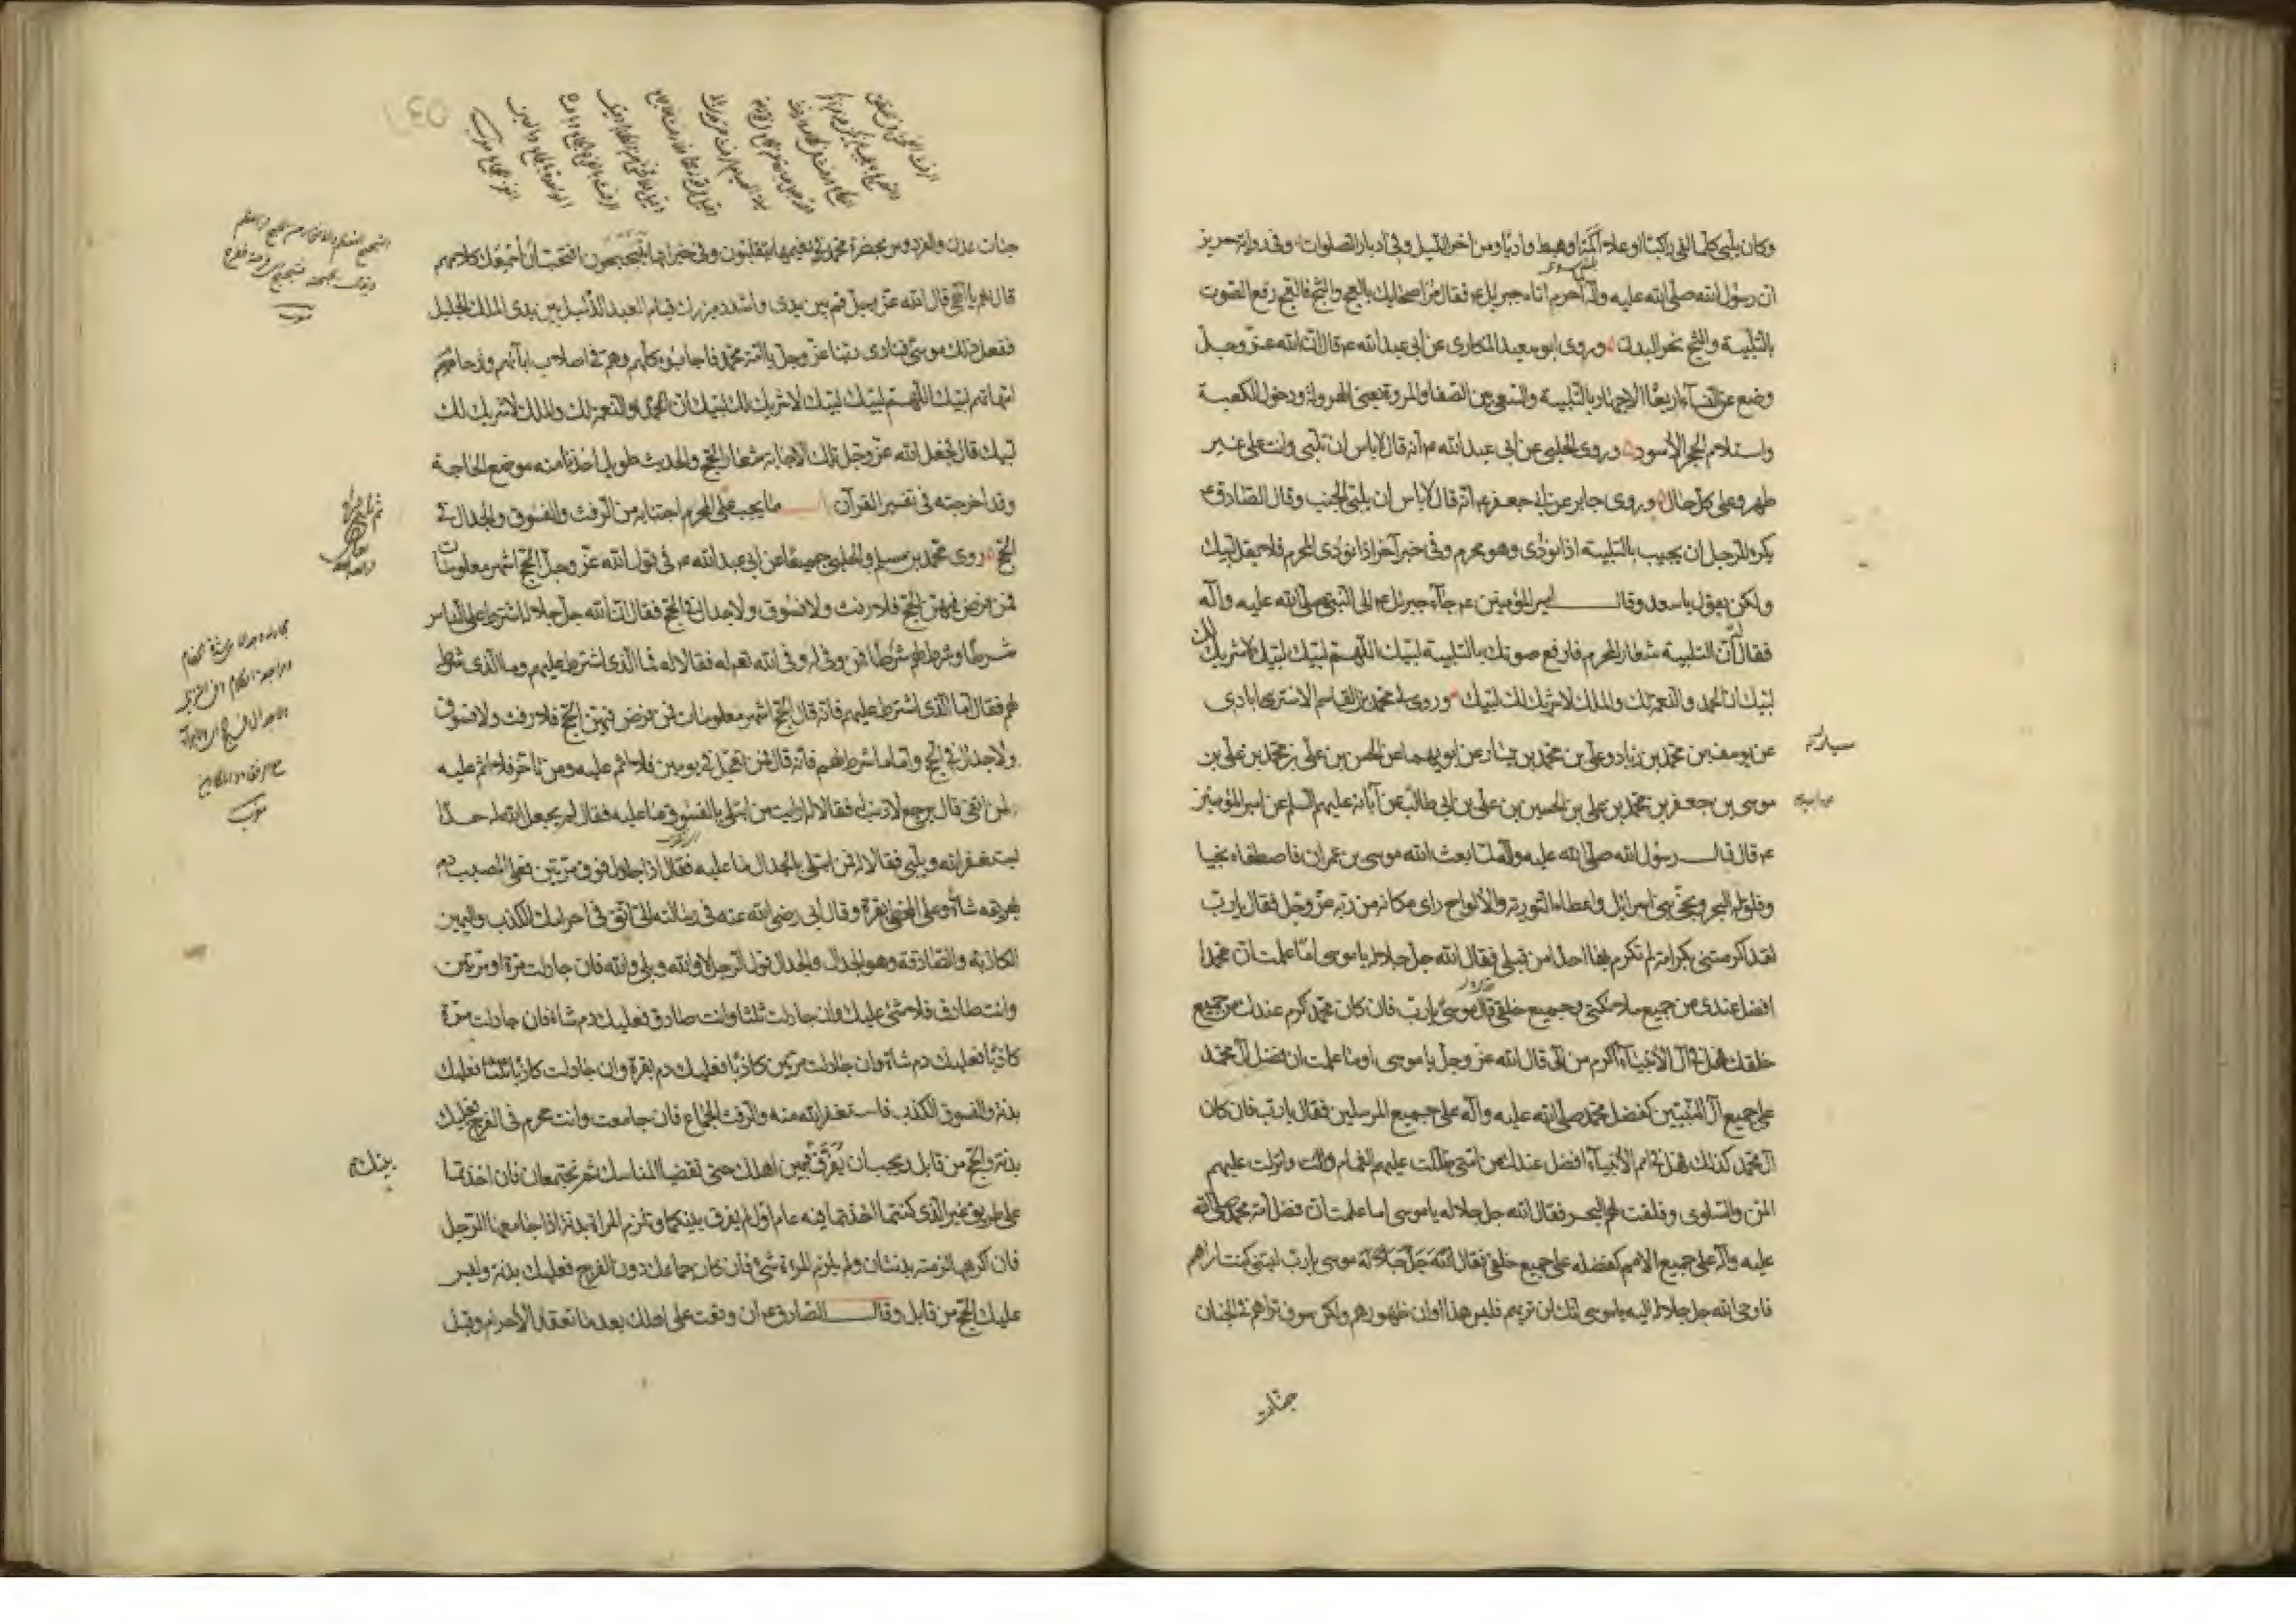 وكان يلبي كلما لقي راكبا او علا اكمة او هبط واديا ومن آخر الليل وفي ادبار الصلوات وفي رواية حريز
ان رسول الله صلى الله عليه وآله لما احرم اتاه جبرئيل ع فقال مر اصحابك بالعج والثج فالعج رفع الصوت
بالتلبية والثج نحر البدن وروى ابو سعيد المكاري عن ابي عبد الله ع قال ان الله عز وجل
وضع عن النساء اربعا الاجهار بالتلبية والسعي بين الصفا والمروة يعني الهرولة ودخول الكعبة
واستلام الحجر الاسود وروى الحلبي عن ابي عبد الله ع انه قال لا باس ان تلبي وانت على غير
طهر وعلى كل حال وروى جابر عن ابي جعفر ع انه قال لا باس ان يلبي الجنب وقال الصادق ع
يكره للرجل ان يجيب بالتلبية اذا نودي وهو محرم وفي خبر آخر اذا نودي المحرم فلا يقل لبيك
ولكن يقول يا سعد وقال امير المؤمنين ع جاء جبرئيل ع الى النبي صلى الله عليه وآله
فقال له ان التلبية شعار المحرم فارفع صوتك بالتلبية لبيك اللهم لبيك لبيك لا شريك لك
لبيك ان الحمد والنعمة لك والملك لا شريك لك لبيك وروى لي محمد بن القاسم الاسترابادي
عن يوسف بن محمد بن زياد وعلي بن محمد بن يسار عن ابويهما عن الحسن بن علي بن محمد بن علي بن
موسى بن جعفر بن محمد بن علي بن الحسين بن علي بن ابي طالب عن آبائه عليهم السلم عن امير المؤمنين
ع قال قال رسول الله صلى الله عليه وآله لما بعث الله موسى بن عمران فاصطفاه نجيا
وفلق له البحر ونجى بني اسرائيل واعطاه التورية والألواح راى مكانه من ربه عز وجل فقال يا رب
لقد اكرمتني بكرامة لم تكرم بها احدا من قبلي فقال الله جل جلاله يا موسى اما علمت ان محمدا
افضل عندي من جميع ملائكتي وجميع خلقي قال موسى يا رب فان كان محمد اكرم عندك من جميع
خلقك فهل في آل الأنبياء اكرم من آلي قال الله عز وجل يا موسى اوما علمت ان فضل آل محمد
على جميع آل النبيين كفضل محمد صلى الله عليه وآله على جميع المرسلين فقال يا رب فان كان
آل محمد كذلك فهل في امم الأنبياء افضل عندك من امتي ظللت عليهم الغمام وانزلت عليهم
المن والسلوى وفلقت لهم البحر فقال الله جل جلاله يا موسى اما علمت ان فضل امة محمد صلى الله
عليه وآله على جميع الامم كفضله على جميع خلقي فقال موسى يا رب ليتني كنت اراهم
فاوحى الله جل جلاله اليه يا موسى انك لن تريهم فليس هذا اوان ظهورهم ولكن سوف تراهم في الجنان
جنات
جنات عدن والفردوس بحضرة محمد في نعيمها يتقلبون وفي خيراتها يتبحبحون افتحب ان اسمعك كلامهم
قال نعم يا الهي قال الله عز وجل قم بين يدي واشدد مئزرك قيام العبد الذليل بين يدي الملك الجليل
ففعل ذلك موسى فنادى ربنا عز وجل يا امة محمد فاجابوه كلهم وهم في اصلاب آبائهم وارحام
امهاتهم لبيك اللهم لبيك لبيك لا شريك لك لبيك ان الحمد والنعمة لك والملك لا شريك لك
لبيك قال فجعل الله عز وجل تلك الاجابة شعار الحج والحديث طويل اخذنا منه موضع الحاجة
وقد اخرجته في تفسير القرآن ما يجب على المحرم اجتنابه من الرفث والفسوق والجدال في
الحج روى محمد بن مسلم والحلبي جميعا عن ابي عبد الله ع في قول الله عز وجل الحج اشهر معلومات
فمن فرض فيهن الحج فلا رفث ولا فسوق ولا جدال في الحج فقال ان الله جل جلاله اشترط على الناس
شرطا وشرط لهم شرطا فمن وفى له وفى الله له فقالا له فما الذي اشترط عليهم وما الذي شرط
لهم فقال اما الذي اشترط عليهم فانه قال الحج اشهر معلومات فمن فرض فيهن الحج فلا رفث ولا فسوق
ولا جدال في الحج واما ما شرط لهم فانه قال فمن تعجل في يومين فلا اثم عليه ومن تاخر فلا اثم عليه
لمن اتقى قال يرجع لا ذنب له فقالا له ارايت من ابتلي بالفسوق ما عليه فقال لم يجعل الله له حدا
يستغفر الله ويلبي فقالا له فمن ابتلي بالجدال ما عليه فقال اذا جادل فوق مرتين فعلى المصيب دم
يهريقه شاة وعلى المخطي بقرة وقال ابي رضي الله عنه في رسالته الي اتق في احرامك الكذب واليمين
الكاذبة والصادقة وهو الجدال والجدال قول الرجل لا والله وبلى والله فان جادلت مرة او مرتين
وانت صادق فلا شئ عليك وان جادلت ثلثا وانت صادق فعليك دم شاة فان جادلت مرة
كاذبا فعليك دم شاة وان جادلت مرتين كاذبا فعليك دم بقرة وان جادلت كاذبا ثلثا فعليك
بدنة والفسوق الكذب فاستغفر الله منه والرفث الجماع فان جامعت وانت محرم في الفرج فعليك
بدنة والحج من قابل ويجب ان يفرق بين اهلك حتى تقضيا المناسك ثم تجتمعان فان اخذتما
على طريق غير الذي كنتما اخذتما فيه عام اول لم يفرق بينكما وتلزم المراة بدنة اذا جامعها الرجل
فان اكرهها لزمته بدنتان ولم يلزم المرءة شئ فان كان جماعك دون الفرج فعليك بدنة وليس
عليك الحج من قابل وقال الصادق ع ان وقعت على اهلك بعد ما تعقد الأحرام وقبل
بينك